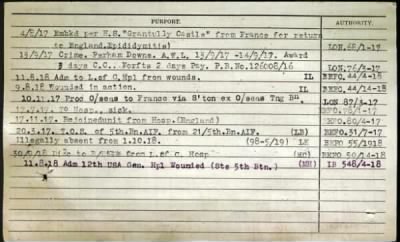 PURPORT. AUTHORITY.
4/8/17 Embkd per H.S."Grantully Castle" from France for return
to England.Epididymitis) LON.68/1-17
15/9/17 Crime. Perham Downs. A.W.L, 13/9/17 -14/9/17. Award
3 days C.C.. Forfts 2 days Pay. P.B.No.126008/16 LON.76/3-17
11.8.18 Adm to L.of C.Hpl from wounds. IL BEFC.44/4-18
9.8.18 Wounded in action. IL BEFC.44/14-18
10.11.17 Proc O/seas to France via S'ton ex O/seas Tng Bn LON 87/3-17
12.7.17. to Hosp., sick. BEFO.70/2-17
17.11.17. Rejoinedunit from Hosp.(England) BEFO.80/4-17
20.5.17. T.O.S. of 5th.Bn.AIF. from 21/5th.Bn.AIF. (LB) BEFO.31/7-17
Illegally absent from 1.10.18. (98-5/19) LE BEFO 55/1918
30/9/18 from L of C. Hosp BEFO 50/14-18
11.8.18 Adm 12th USA Gen. Hpl Wounded (Ste 5th Btn.) (MH) IB 548/4-18